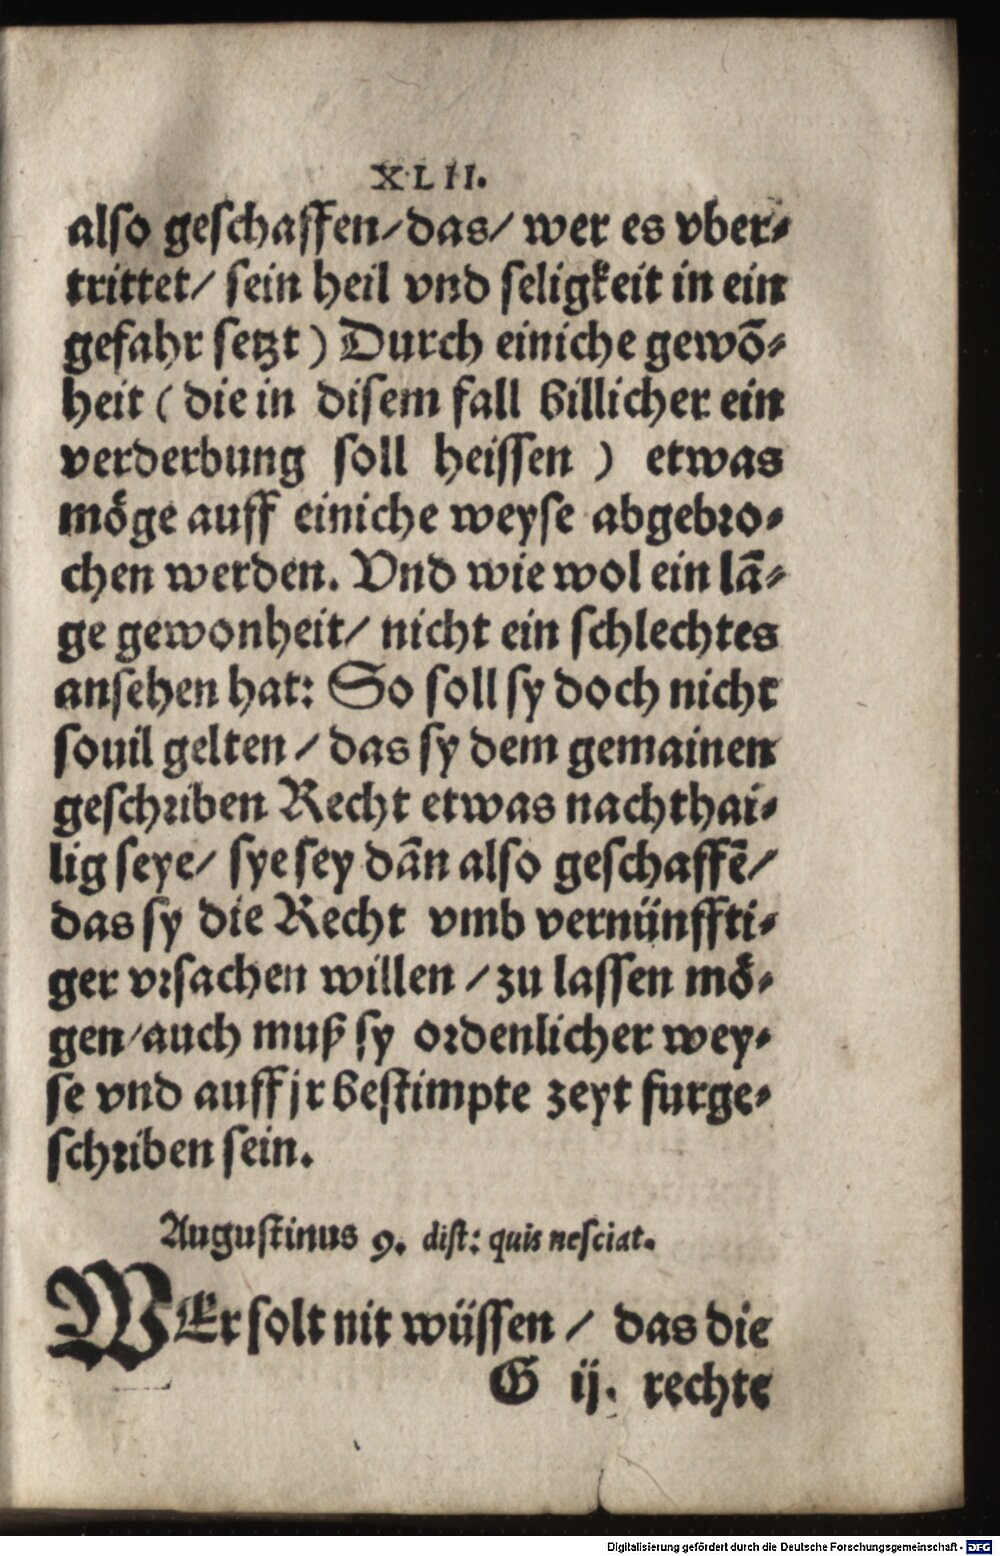 XLII.
also geschaffen/das/ wer es vber⸗
trittet/ sein heil vnd seligkeit in ein
gefahr setzt) Durch einiche gewõ⸗
heit (die in disem fall billicher ein
verderbung soll heissen) etwas
möge auff einiche weyse abgebro⸗
chen werden. Vnd wie wol ein lã⸗
ge gewonheit/ nicht ein schlechtes
ansehen hat: So soll sy doch nicht
souil gelten/ das sy dem gemainen
geschriben Recht etwas nachthai⸗
lig seye/ sye sey dãn also geschaffẽ/
das sy die Recht vmb vernünffti⸗
ger vrsachen willen/ zu lassen mö⸗
gen/auch muß sy ordenlicher wey⸗
se vnd auff jr bestimpte zeyt furge⸗
schriben sein.
Augustinus 9. dist: quis nesciat.
WEr solt nit wüssen/ das die
G ij. rechte
Digitalisierung gefördert durch die Deutsche Forschungsgemeinschaft - DFG